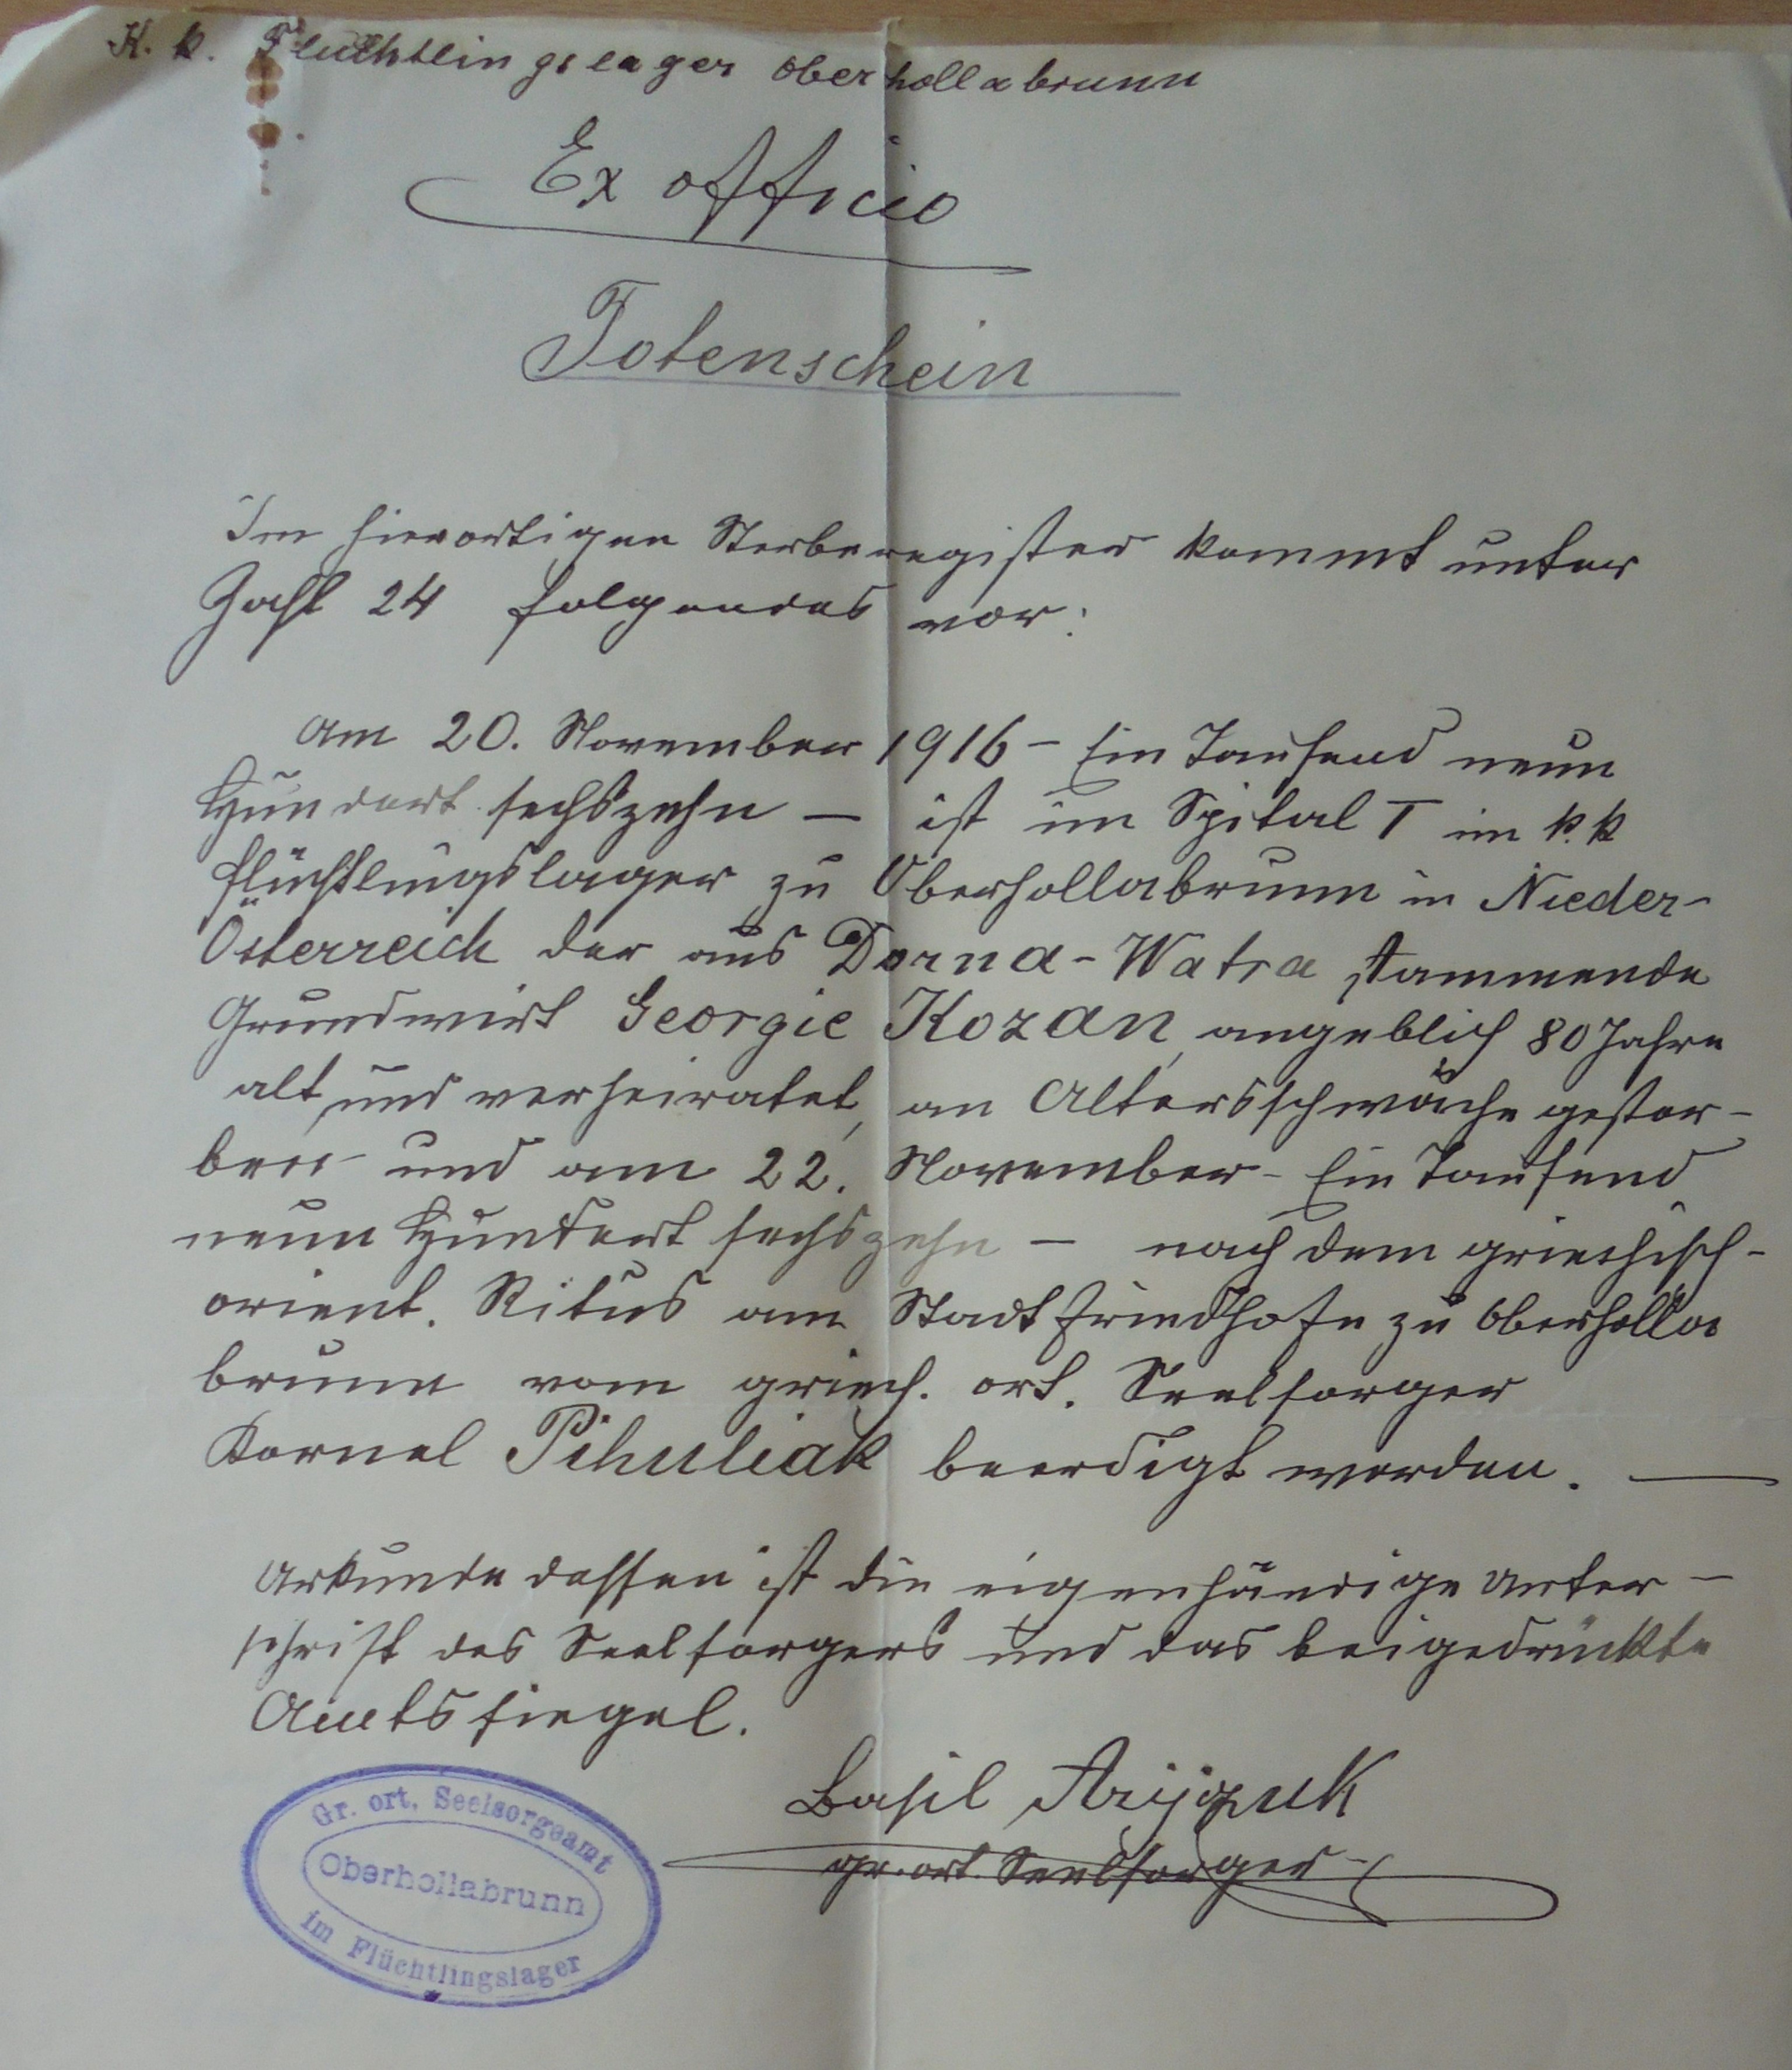 K. k. Flüchtlingslager Oberhollabrunn
Ex officio
Totenschein
Im hierortigen Sterberegister kommt unter
Zahl 24 folgendes vor:
Am 20. November 1916 – Ein Tausend neun
Hundert sechszehn – ist im Spital I im k. k
Flüchtlingslager zu Oberhollabrunn in Nieder-
Österreich der aus Dorna-Watra stammende
Grundwirt Georgie Kozan, angeblich 80 Jahre
alt und verheiratet, an Altersschwäche gestor-
ben und am 22. November – Ein Tausend
neun Hundert sechszehn – nach dem griechisch-
orient. Ritus am Stadtfriedhofe zu Oberholla
brunn vom griech. ort. Seelsorger
Kornel Pihuliak beerdigt worden. —
Urkunde dessen ist die eigenhändige Unter-
schrift des Seelsorgers und das beigedrückte
Amtssiegel.
Basil
gr. ort. Seelsorger
Gr. ort. Seelsorgeamt
Oberhollabrunn
im Flüchtlingslager